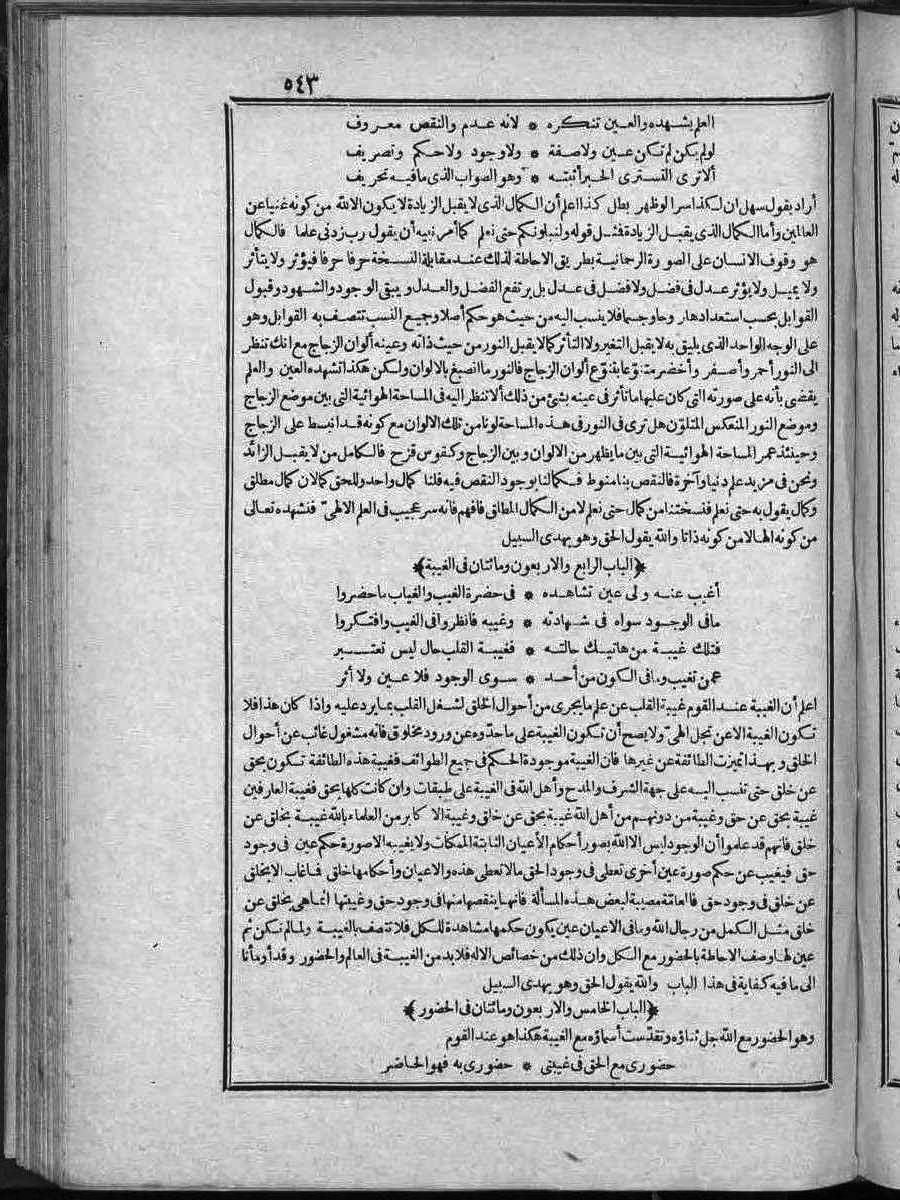 ٥٤٣
العلم يشهده والعين تنكره * لانه عدم والنقص معروف
لولم يكن لم تكن عين ولاصفة * ولا وجود ولا حكم وتصريف
ألا ترى التسترى الحبر أثبته * وهو الصواب الذى مافيه تحريف
أراد بقول سهل ان لكذا سرا لو ظهر بطل كذا اعلم أن الكمال الذى لا يقبل الزيادة لا يكون الا لله من كونه غنيا عن
العالمين وأما الكمال الذى يقبل الزيادة فمثل قوله ولنبلونكم حتى نعلم كما أمر نبيه أن يقول رب زدنى علما فالكمال
هو وقوف الانسان على الصورة الرحمانية بطريق الاحاطة لذلك عند مقابلة النسخة حرفا حرفا فيؤثر ولا يتأثر
ولا يميل ولا يؤثر عدل فى فضل ولا فضل فى عدل بل يرتفع الفضل والعدل ويبقى الوجود والشهود وقبول
القوابل بحسب استعدادها روحا وجسما فلا ينسب اليه من حيث هو حكم أصلا وجميع النسب تتصف به القوابل وهو
على الوجه الواحد الذى يليق به لا يقبل التغير ولا التأثر كما لا يقبل النور من حيث ذاته وعينه ألوان الزجاج مع انك تنظر
الى النور أحمر وأصفر وأخضر متنوّعا بتنوّع ألوان الزجاج فالنور ما انصبغ بالالوان ولكن هكذا تشهده العين والعلم
يقضى بأنه على صورته التى كان عليها ما تأثر فى عينه بشئ من ذلك ألا تنظر اليه فى المساحة الهوائية التى بين موضع الزجاج
وموضع النور المنعكس المتلوّن هل ترى فى النور فى هذه المساحة لونا من تلك الالوان مع كونه قد انبسط على الزجاج
وحينئذ عمر المساحة الهوائية التى بين ما يظهر من الالوان وبين الزجاج وكقوس قزح فالكامل من لا يقبل الزائد
ونحن فى مزيد علم دنيا وآخرة فالنقص بنا منوط فكمالنا بوجود النقص فيه فلنا كمال واحد وللحق كمالان كمال مطلق
وكمال يقول به حتى نعلم فنسختنا من كمال حتى نعلم لا من الكمال المطلق فافهم فانه سر عجيب فى العلم الالهىّ فنشهده تعالى
من كونه الها لا من كونه ذاتا والله يقول الحق وهو يهدى السبيل
﴿الباب الرابع والاربعون ومائتان فى الغيبة﴾
أغيب عنه ولى عين تشاهده * فى حضرة الغيب والغياب ما حضروا
مافى الوجود سواه فى شهادته * وغيبه فانظروا فى الغيب وافتكروا
فتلك غيبة من هاتيك حالته * فغيبة القلب حال ليس تعتبر
عمن تغيب ومافى الكون من أحد * سوى الوجود فلا عين ولا أثر
اعلم أن الغيبة عند القوم غيبة القلب عن علم ما يجرى من أحوال الخلق لشغل القلب بما يرد عليه واذا كان هذا فلا
تكون الغيبة الا عن تجل الهىّ ولا يصح أن تكون الغيبة على ما حدّوه عن ورود مخلوق فانه مشغول غائب عن أحوال
الخلق وبهذا تميزت الطائفة عن غيرها فان الغيبة موجودة الحكم فى جميع الطوائف فغيبة هذه الطائفة تكون بحق
عن خلق حتى تنسب اليه على جهة الشرف والمدح وأهل الله فى الغيبة على طبقات وان كانت كلها بحق فغيبة العارفين
غيبة بحق عن حق وغيبة من دونهم من أهل الله غيبة بحق عن خلق وغيبة الاكابر من العلماء بالله غيبة بخلق عن
خلق فانهم قد علموا أن الوجود ليس الا الله بصور أحكام الأعيان الثابتة الممكنات ولا يغيبه الا صورة حكم عين فى وجود
حق فيغيب عن حكم صورة عين أخرى تعطى فى وجود الحق مالا تعطى هذه والاعيان وأحكامها خلق فما غاب الا بخلق
عن خلق فى وجود حق فالعامّة مصيبة لبعض هذه المسألة فانها ينقصها منها فى وجود حق وغيبتها انما هى بخلق عن
خلق مثل الكمل من رجال الله ومافى الاعيان عين يكون حكمها مشاهدة للكل فلا تتصف بالغيبة ولما لم تكن ثم
عين لها وصف الاحاطة بالحضور مع الكل وان ذلك من خصائص الاله فلابد من الغيبة فى العالم والحضور وقد أومأنا
الى ما فيه كفاية فى هذا الباب والله يقول الحق وهو يهدى السبيل
﴿الباب الخامس والاربعون ومائتان فى الحضور﴾
وهو الحضور مع الله جل ثناؤه وتقدّست أسماؤه مع الغيبة هكذا هو عند القوم
حضورى مع الحق فى غيبتى * حضورى به فهو الحاضر